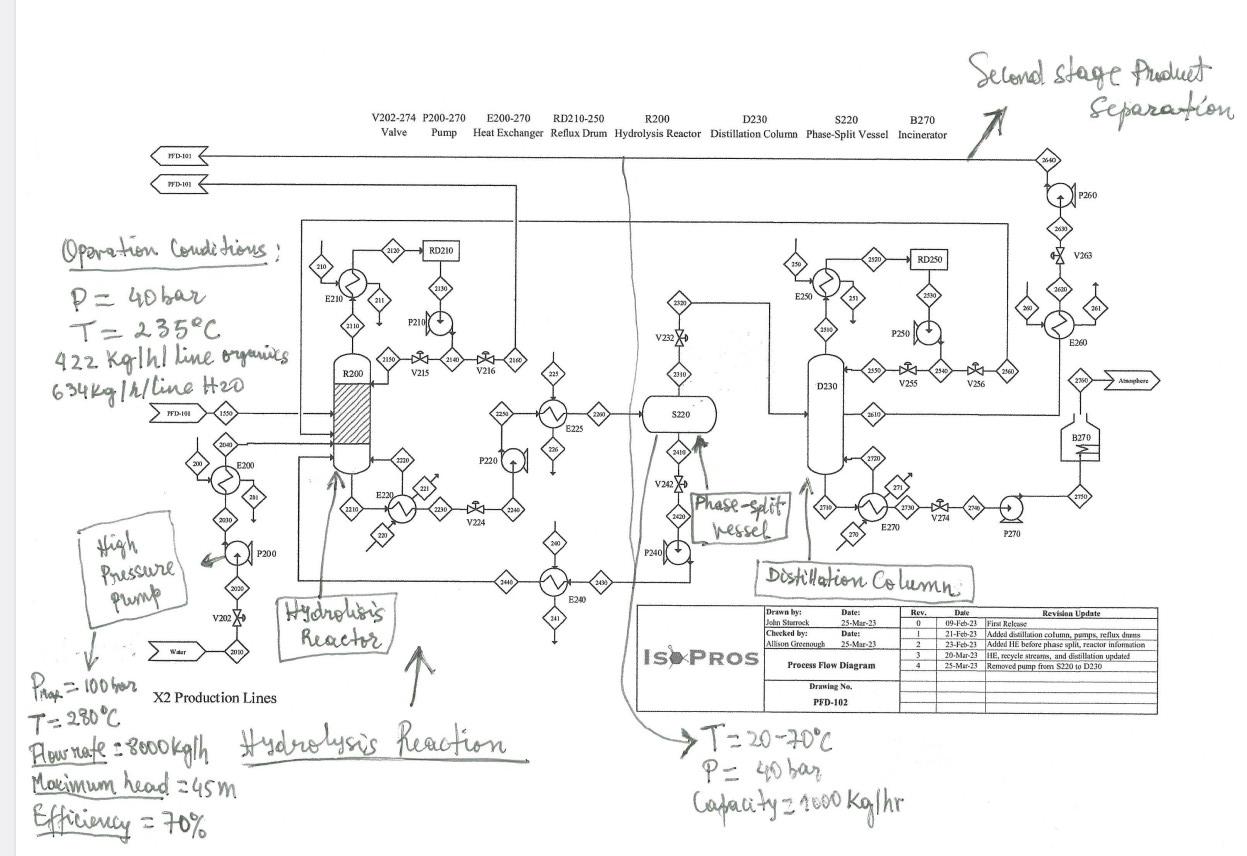 Second stage Product
Separation
V202-274 P200-270 E200-270 RD210-250 R200 D230 S220 B270
Valve Pump Heat Exchanger Reflux Drum Hydrolysis Reactor Distillation Column Phase-Split Vessel Incinerator
PFD-101
2640
PFD-101
P260
2630
V263
2620
260
261
E260
Operation Conditions:
P = 40bar
T = 235°C
422 Kg/h/line organics
634Kg/h/line H2O
210
2120
RD210
E210
211
2130
2110
P210
2150
V215
2140
V216
2160
R200
250
2520
RD250
E250
251
2530
2510
P250
2550
V255
2540
V256
2560
D230
2320
V232
2310
225
2250
E225
2260
226
S220
2610
2760
Atmosphere
B270
PFD-101
1550
2040
200
E200
201
2030
P200
2020
V202
Water
2010
2220
P220
E220
221
2210
2230
V224
2240
220
2410
V242
2420
P240
240
2440
E240
2430
241
2720
271
2710
2730
V274
2740
270
E270
P270
2750
High
Pressure
Pump
Hydrolisis
Reactor
Phase-split
vessel
Distillation Column
Pmax = 100 bar
T = 280°C
Flow rate = 8000Kg/h
Maximum head = 45m
Efficiency = 70%
X2 Production Lines
Hydrolysis Reaction
T = 20-70°C
P = 40 bar
Capacity = 1000 Kg/hr
ISOPROS
Drawn by: Date:
John Sturrock 25-Mar-23
Checked by: Date:
Allison Greenough 25-Mar-23
Process Flow Diagram
Drawing No.
PFD-102
Rev. Date Revision Update
0 09-Feb-23 First Release
1 21-Feb-23 Added distillation column, pumps, reflux drums
2 23-Feb-23 Added HE before phase split, reactor infomation
3 20-Mar-23 HE, recycle streams, and distillation updated
4 25-Mar-23 Removed pump from S220 to D230